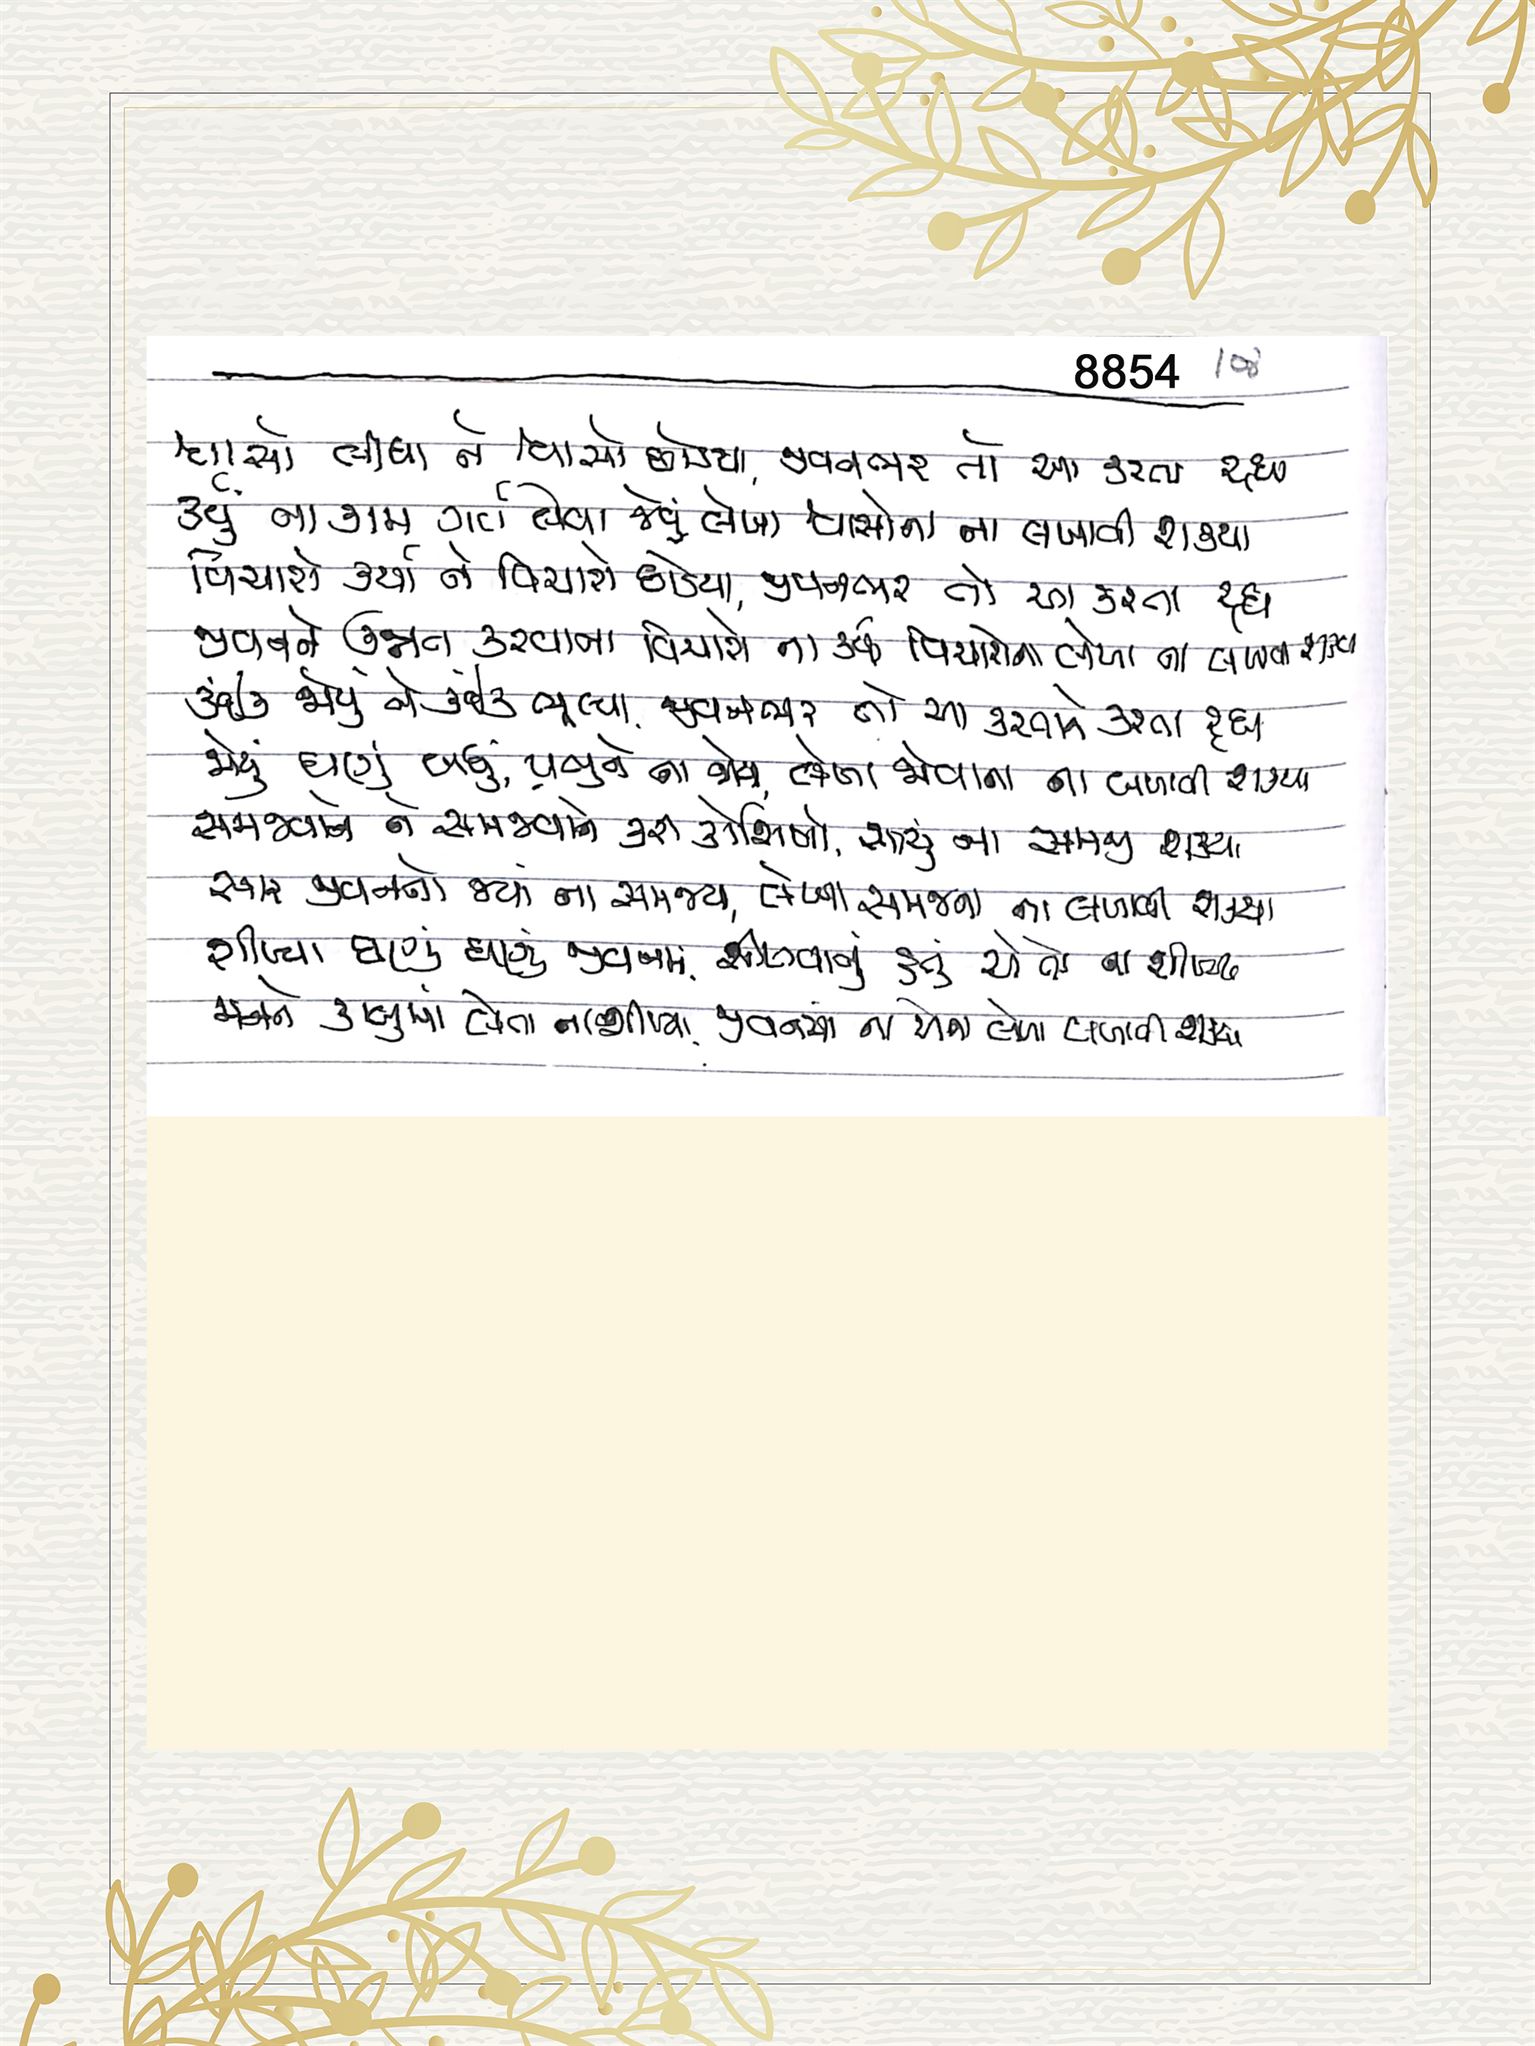 8854 108
શ્વાસો લીધા ને શ્વાસો છોડયા, જીવનભર તો આ કરતા રહ્યા
કર્યું ના કામ ગર્વ લેવા જેવું લેખા શ્વાસોના ના લખાવી શકયા
વિચારો કર્યા ને વિચારો છોડયા, જીવનભર તો આ કરતા રહ્યા
જીવનને ઉન્નત કરવાના વિચારો ના કર્યા વિચારોના લેખા ના લખાવી શકયા
કંઈક જોયું ને કંઈક ભૂલ્યા, જીવનભર તો આ કરતાને કરતા રહ્યા
જોયું ઘણું બધું, પ્રભુને ના જોયા, લેખા જોવાના ના લખાવી શકયા
સમજવાને ને સમજવાને કરી કોશિશો, સાચું ના સમજી શકયા
સાર જીવનનો જ્યાં ના સમજ્યા, લેખા સમજના ના લખાવી શકયા
શીખ્યા ઘણું ઘણું જીવનમાં, શીખવાનું હતું એ તો ના શીખ્યા
મનને કાબુમાં લેતા ના શીખ્યા, જીવનમાં ના એના લેખા લખાવી શકયા